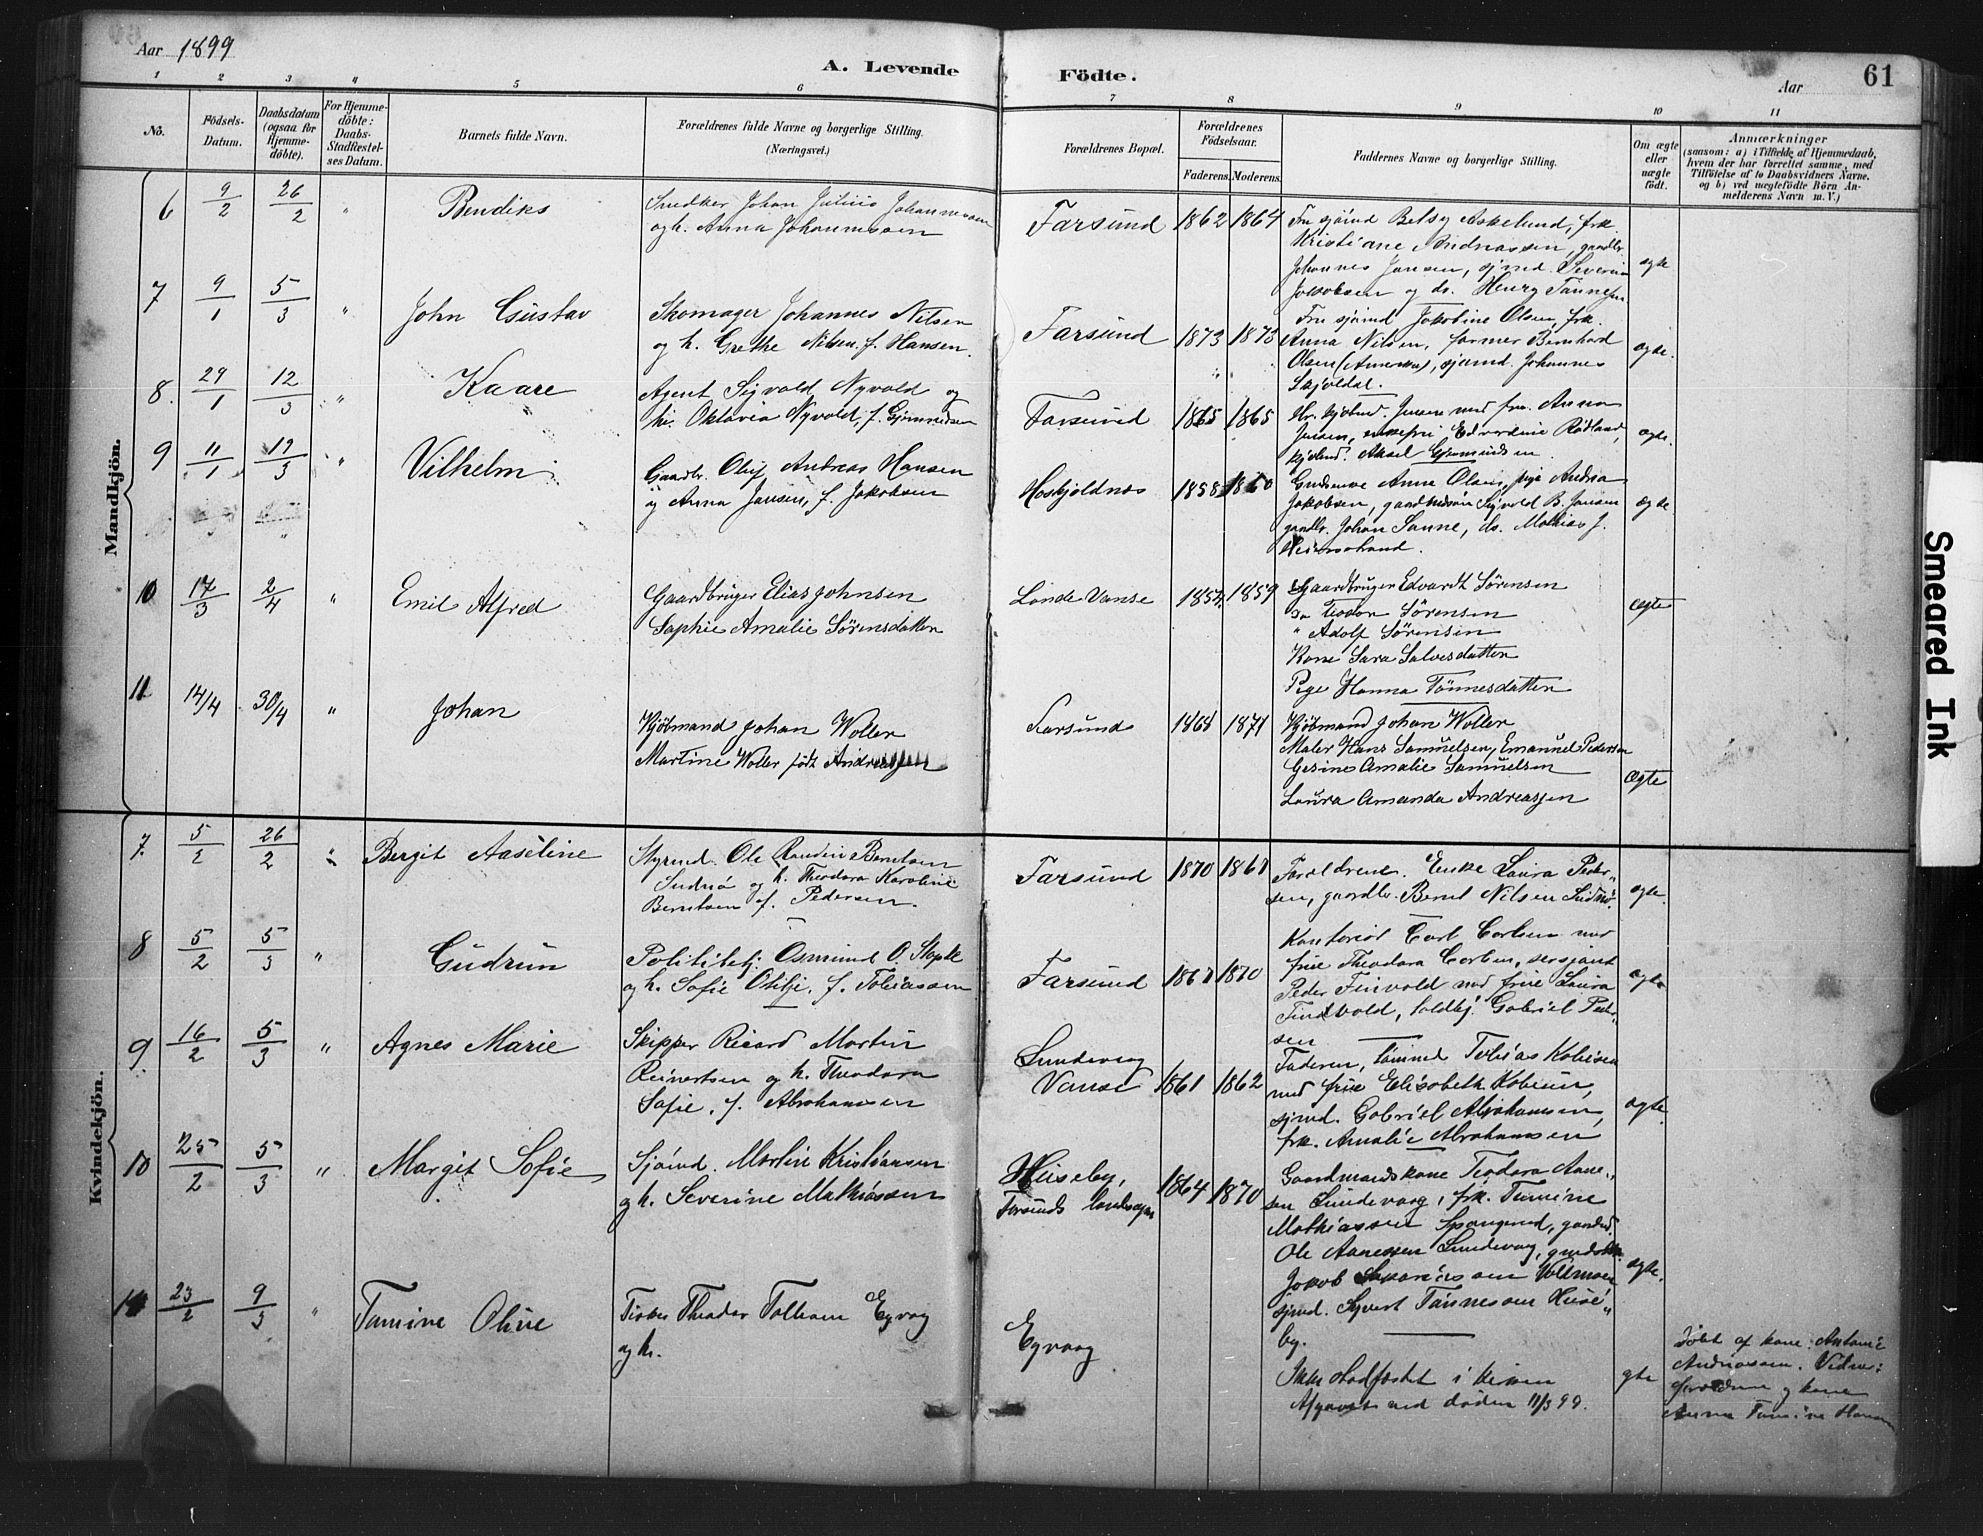 Aar 1899
A. Levende Födte.
Aar
61
1 2 3 4 5 6 7 8 9 10 11
No.
Födsels-Datum.
Daabsdatum (ogsaa for Hjemme-döbte).
For Hjemme-döbte: Daabs-Stadfæstel-ses Datum.
Barnets fulde Navn.
Forældrenes fulde Navne og borgerlige Stilling.
(Næringsvei.)
Forældrenes Bopæl.
Forældrenes Födselsaar.
Faderens. Moderens.
Faddernes Navne og borgerlige Stilling.
Om ægte eller uægte födt.
Anmærkninger
(saasom: a) i Tilfælde af Hjemmedaab,
hvem der har forrettet samme, med
Tilföielse af to Daabsvidners Navne.
og b) ved uægtefödte Börn An-
melderens Navn m. V.)
Mandkjön.
6 9/2 26/2 " Bendiks
Snedker Johan Julius Johannessen
og h. Anna Johannessen
Farsund 1862 1864
Fru sjömd Betsy Askelund, frk.
Kristiane Andreassen, gaardbr.
Johannes Jansen, sjmd. Severin
Jakobsen og ds. Henry Tönnesen
ægte
7 9/1 5/3 " John Gustav
Skomager Johannes Nilsen
og h. Grethe Nilsen, f. Hansen.
Farsund 1873 1873
Fru sjömd Jakobine Olsen frk.
Anna Nilsen, farmer Bernhard
Olsen (Amerika), sjömd. Johannes
Skjoldal.
ægte.
8. 29/1 12/3 " Kaare
Agent Sigvald Nyvold og
h. Oktavia Nyvold, f. Gjermundsen
Farsund 1865 1865
Hr. kjöbmd. Jensen med fru Anna
Jensen, enkefru Edvardine Rödland,
kjöbmd. Aksel Gjermundsen
ægte.
9 11/1 19/3 " Vilhelm
Gaardbr. Oluf Andreas Hansen
og Anna Jansen, f. Jakobsen
Hoskjoldnes 1858 1860
Anne Olsen, pige Andrea
Jakobsen, gaardmdssön Sigvald B. Jansen
gaardbr. Johan Sanne, ds. Mathias J.
ægte
10 17/3 2/4 " Emil Alfred
Gaardbruger Elias Johnsen
Sophie Amalie Sörensdatter
Lande Vanse 1857 1859
Gaardbruger Edvardt Sörensen
Do Teodor Sörensen
" Adolf Sörensen
Kone Sara Salvesdatter
Pige Hanna Tönnesdatter
Ægte
11 14/4 30/4 " Johan
Kjöbmand Johan Woller
Martine Woller født Andreassen
Farsund 1868 1871
Kjöbmand Johan Woller
Maler Hans Samuelsen, Emanuel Pedersen
Gesine Amalie Samuelsen
Laura Amanda Andreassen
Ægte
Kvindekjön.
7. 5/2 26/2 " Bergit Aaseline
Styrmd. Ole Randin Berntsen
Sudnö og h. Theodora Karoline
Berntsen f. Pedersen.
Farsund 1870 1867
Forældrene. Enke Laura Peder-
sen, gaardbr. Bernt Nilsen Sudnö.
ægte.
8 5/2 5/3 " Gudrun
Politibetj. Osmund O. Stople
og h. Sofie Otilje, f. Tobiassen
Farsund 1867 1870
Kontorist Carl Carlsen med
frue Theodora Carlsen, sersjant
Peder Finvold med frue Laura
Findvold, toldbj. Gabriel Peder-
sen
ægte
9. 16/2 5/3 " Agnes Marie
Skipper Ricard Martin
Reinertsen og h. Theodora
Sofie, f. Abrahamsen
Lundevaag
Vanse 1861 1862
Faderen, tömmd Tobias Kobisen
med frue Elisabeth Kobisen,
sjmd. Gabriel Abrahamsen,
frk. Amalie Abrahamsen
ægte.
10 25/2 5/3 " Margit Sofie
Sjömd. Martin Kristiansen
og h. Severine Mathiassen
Huseby,
Farsunds landsogn 1864 1870
Gaardmandskone Teodora Aane-
sen Lundevaag, frk. Tomine
Mathiassen Spangmd, gaardmd.
Ole Aanesen Lundevaag,
Jakob Zakariassen
sjmd. Syvert Tönnessen Huse-
by.
ægte.
11 23/2 9/3 " Tomine Oline
Fisker Theodor Tollisen Egvaag
og h.
Egvaag
Ikke stadfæstet i kirken
Afgaaet ved döden 11/3 99.
gte
Döbt af kone Antonie
Andreassen. Vidner:
forældrene og kone
Anna Tomine Hansen
Smeared Ink